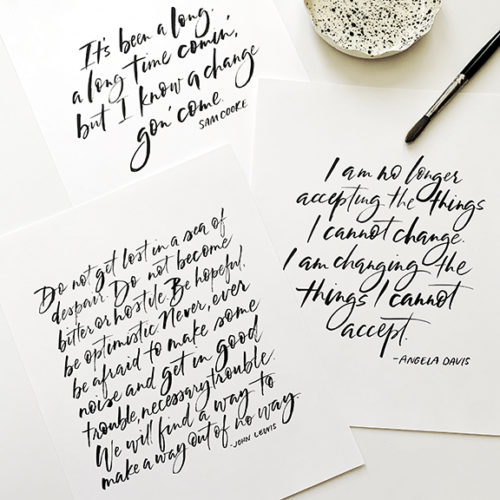 It's been a long.
a long time comin',
but I know a change
gon' come.
SAM COOKE
I am no longer
accepting the things
I cannot change.
I am changing the
things I cannot
accept.
-ANGELA DAVIS
Do not get lost in a sea of
despair. Do not become
bitter or hostile. Be hopeful.
be optimistic. Never, ever
be afraid to make some
noise and get in good
trouble, necessary trouble.
We will find a way to
make a way out of no way.
-JOHN LEWIS